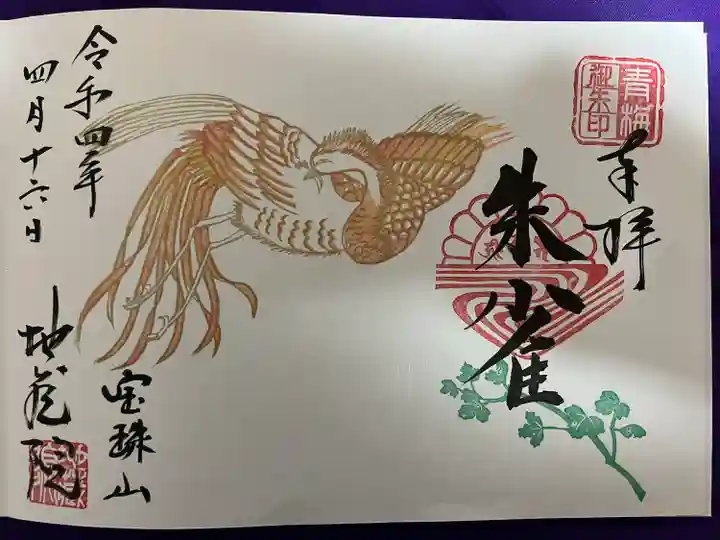 青梅
御朱印
奉拝
朱雀
宝珠山
地蔵院
令和四年
四月十六日